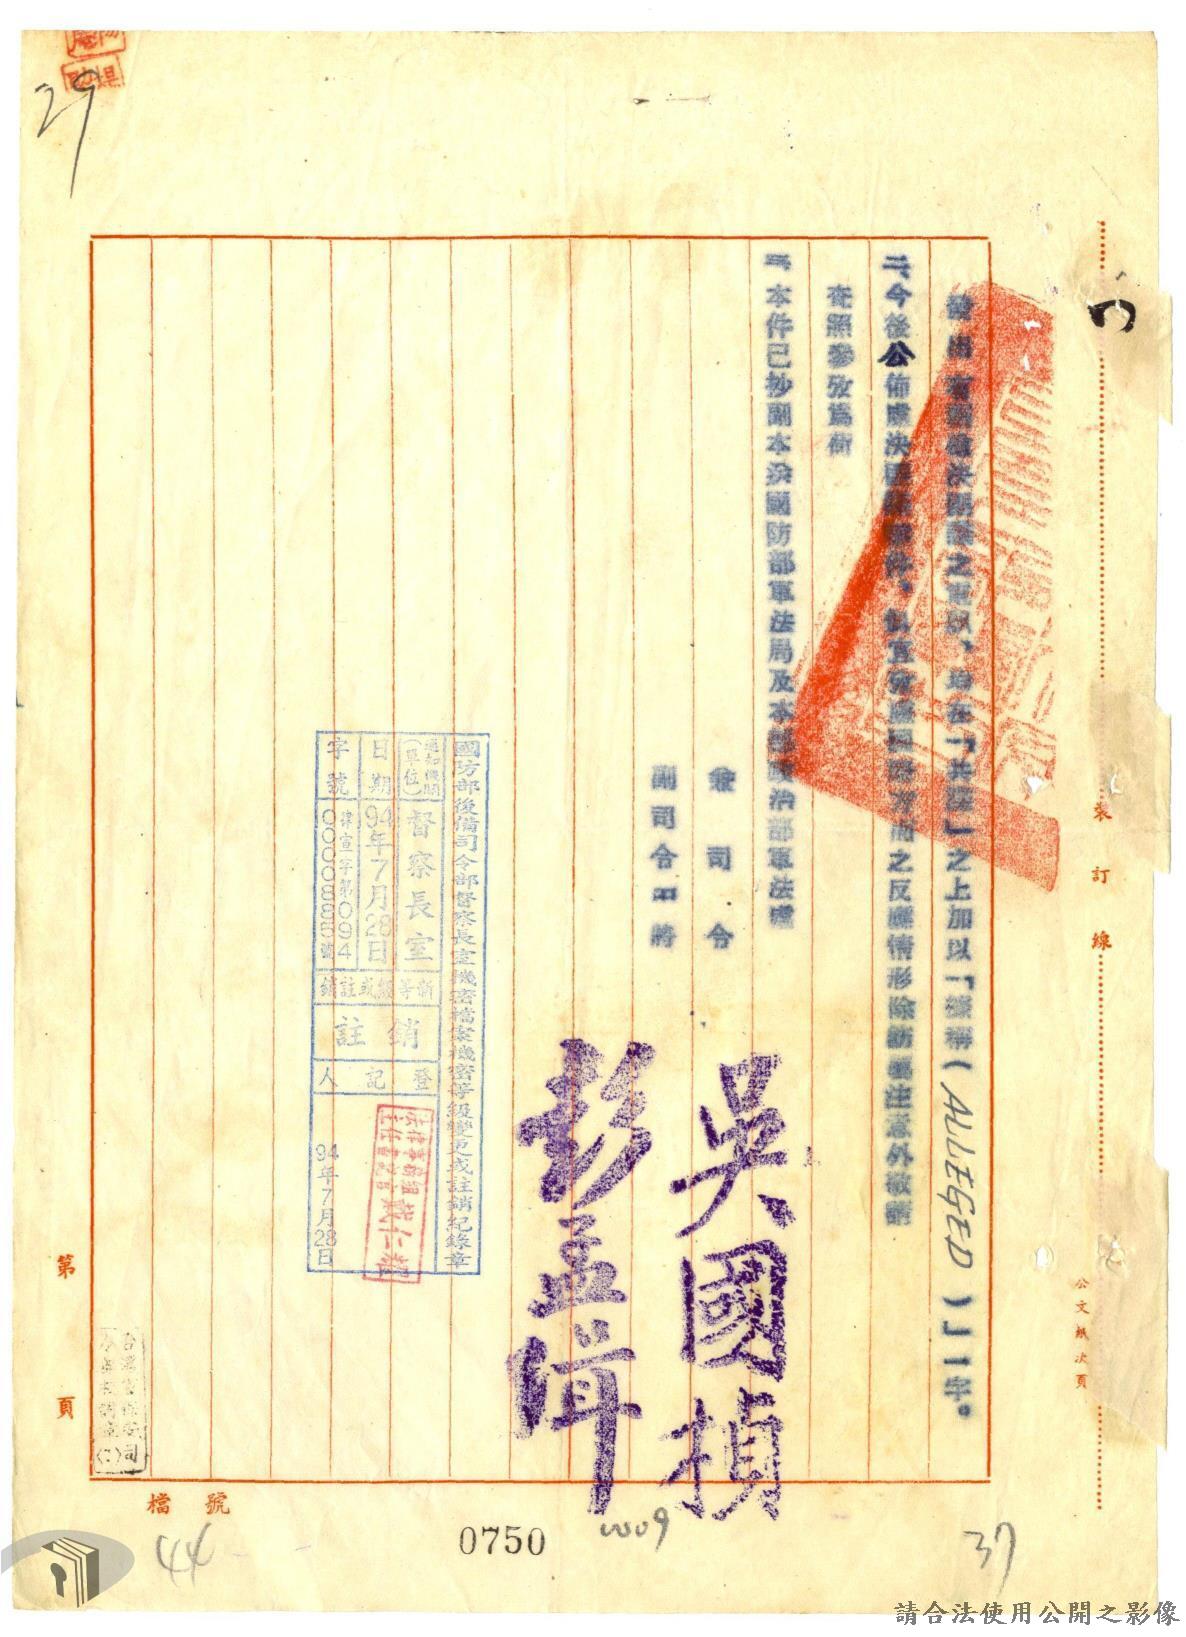 29
裝訂線
公文紙次頁
發出有關槍決開誠之電訊、均在「共諜」之上加以「據稱(ALLEGED)」一字。
二、今後公佈處決匪諜案件、似宜會國際方面之反應情形除飭屬注意外敬請
查照參攷為荷
三、本件已抄副本送國防部軍法局及本部政治部軍法處
兼司令
吳國楨
副司令中將
彭孟緝
國防部後備司令部督察長室機密檔案機密等級變更或註銷紀錄章
通知機關(單位)
督察長室
日期
94年7月28日
字號
律宣字第094
0000885號
新等級或註銷
註銷
登記人
法律事務組
主任書記官
戴仁翔
94年7月28日
第 頁
檔號
44
0750
0009
37
請合法使用公開之影像